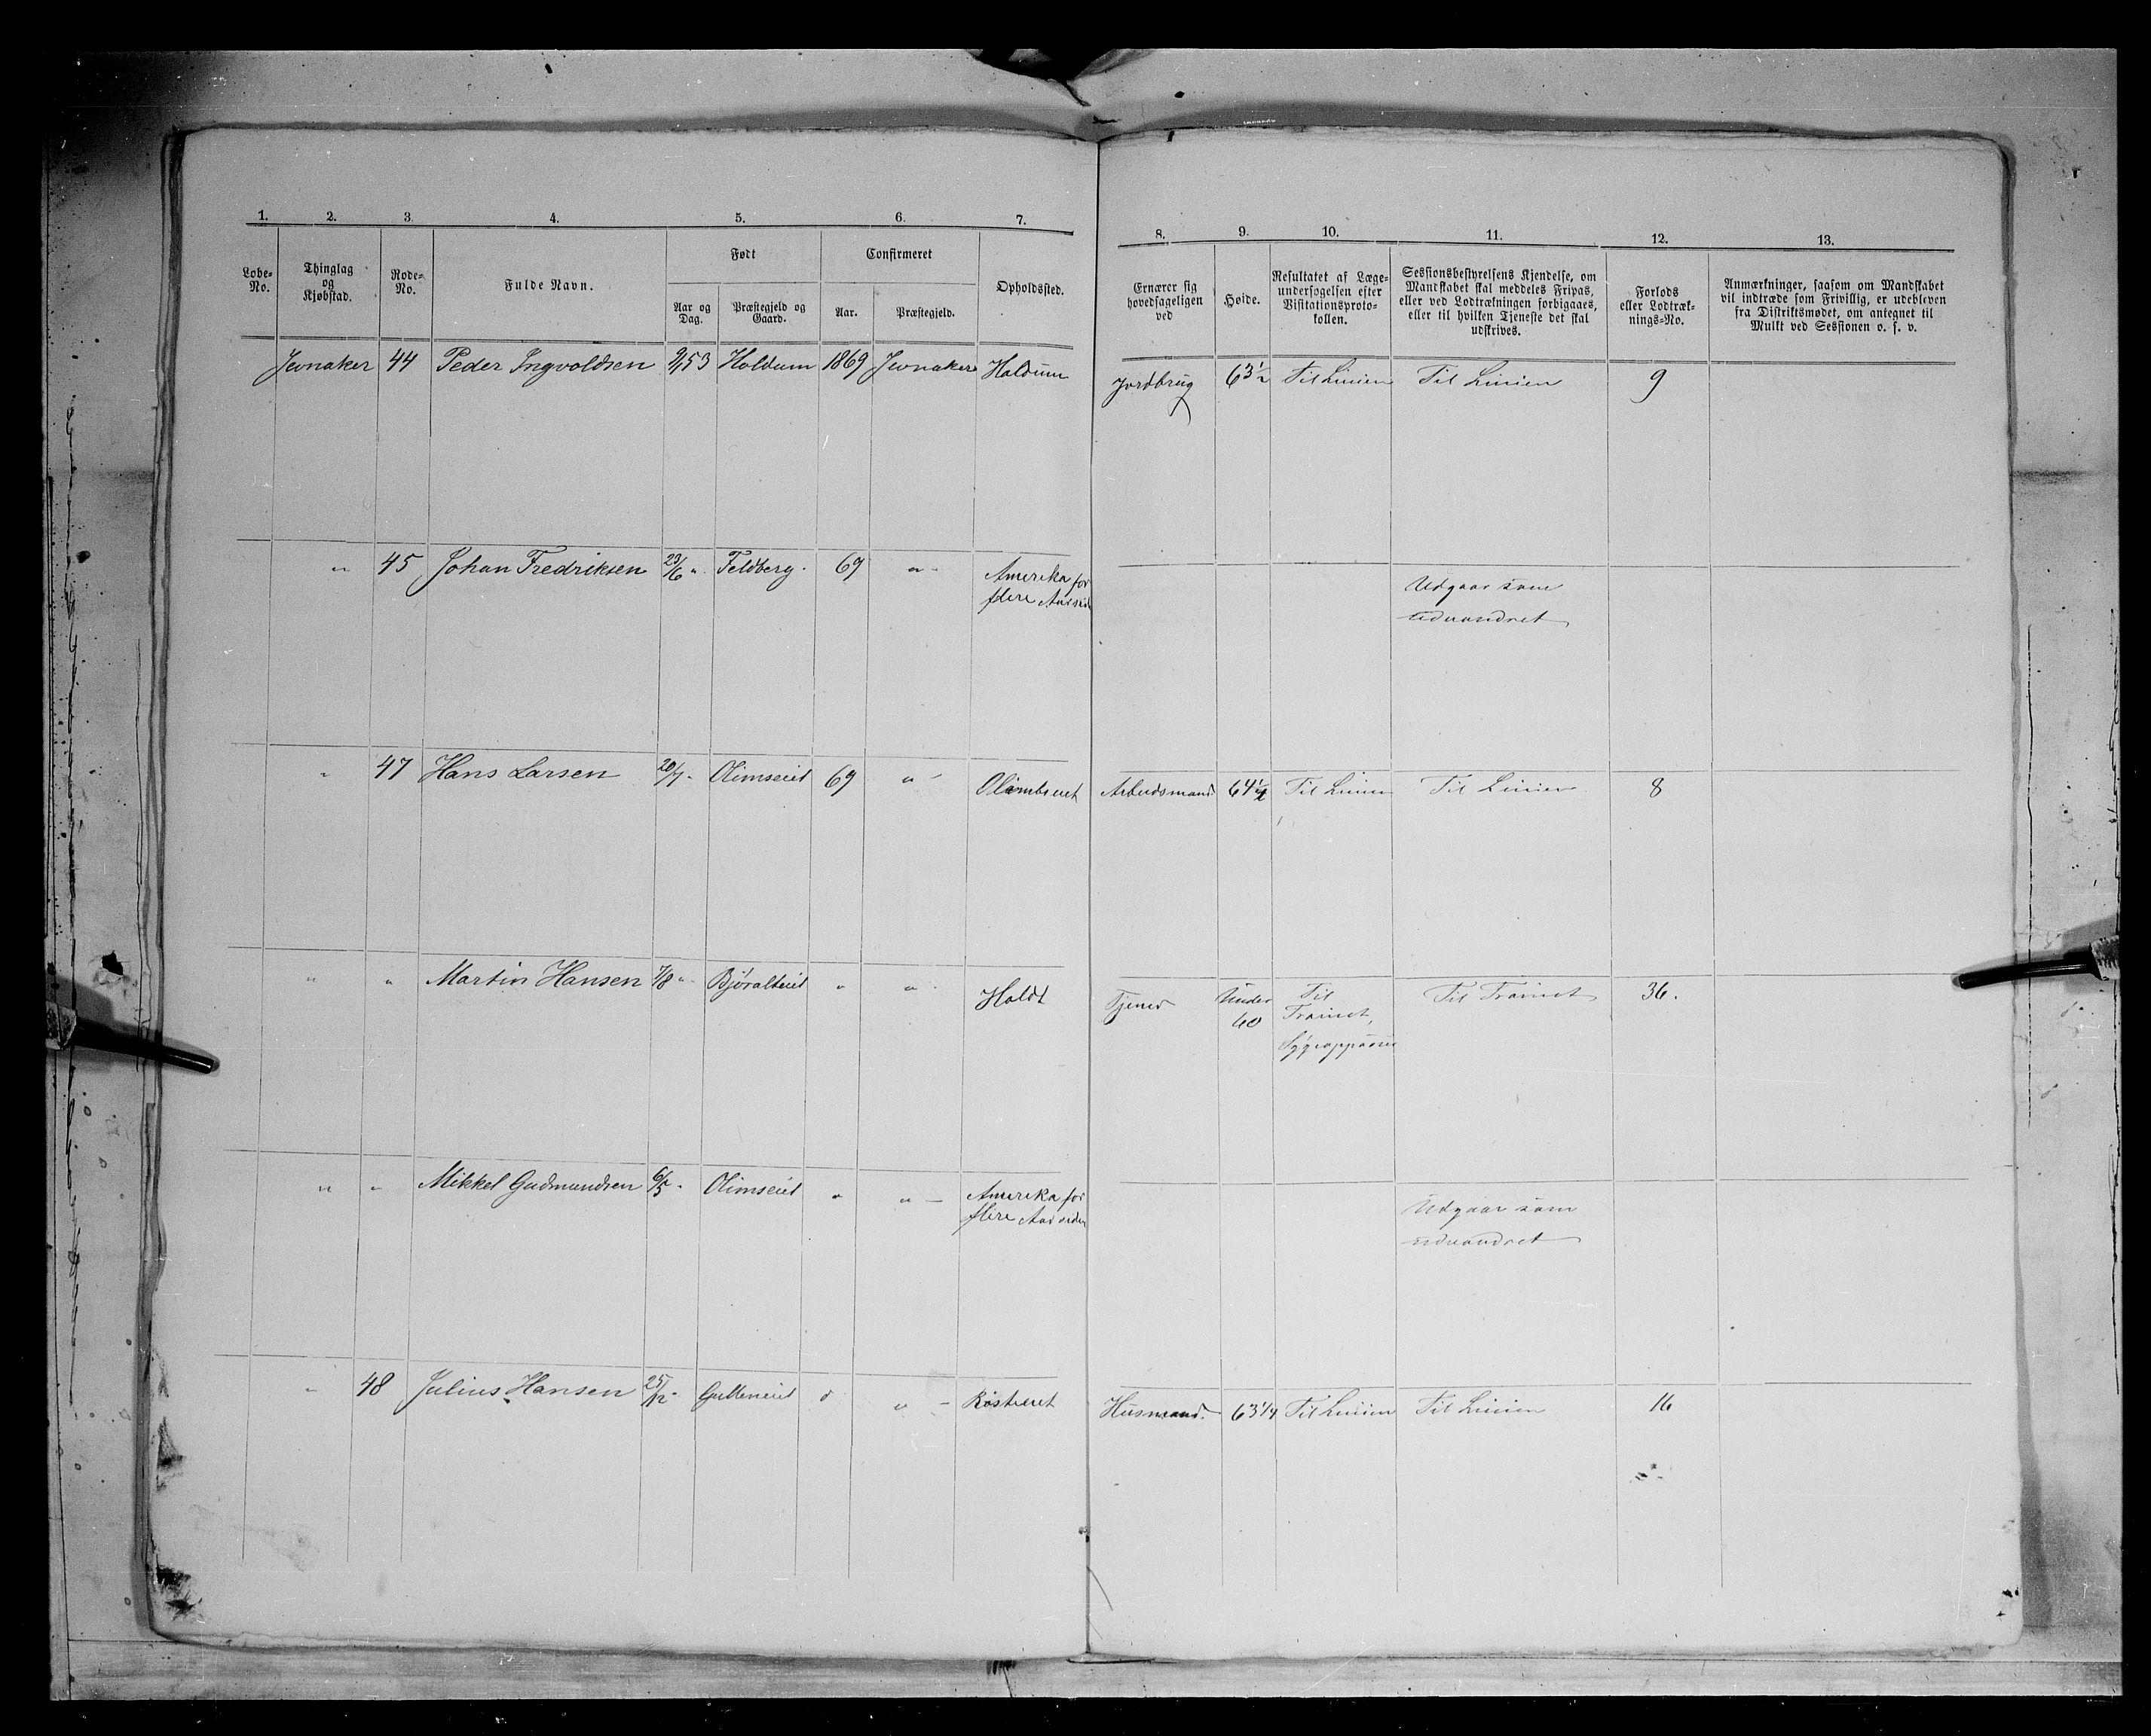 1. 2. 3. 4. 5. 6. 7. 8. 9. 10. 11. 12. 13.
Løbe-No.
Thinglag og Kjøbstad.
Rode-No.
Fulde Navn.
Født
Aar og Dag.
Præstegjeld og Gaard.
Confirmeret
Aar.
Præstegjeld.
Opholdssted.
Ernærer sig hovedsageligen ved
Høide.
Resultatet af Læge-undersøgelsen efter Visitationsproto-kollen.
Sessionsbestyrelsens Kjendelse, om Mandskabet skal meddeles Fripas, eller ved Lodtrækningen forbigaaes, eller til hvilken Tjeneste det skal udskrives.
Forlods eller Lodtræk-nings-No.
Anmærkninger, saasom om Mandskabet vil indtræde som Frivillig, er udebleven fra Distriktsmødet, om antegnet til Mulkt ved Sessionen o. s. v.
Jevnaker 44 Peder Ingvoldsen 53 Holdum 1869 Jevnaker Holdum Jordbrug 63½ Til Linien Til Linien 9
" 45 Johan Fredriksen 23/6 " Feldberg 69 " Amerika for
flere Aar siden
Udgaar som
udvandret
" 47 Hans Larsen 20/7 " Olimseiet 69 " Arbeidsmand Til Linien Til Linien 8
" " Martin Hansen 7/8 " " " Holdt Tjener Under
60
Til
Trainet,
Til Trainet 36.
" " Mikkel Gudmundsen 6/5 " Olimseiet " " Amerika for
flere Aar siden
Udgaar som
udvandret
" 48 Julius Hansen 25/12 " " " Husmand 63 1/4 Til Linien Til Linien 16